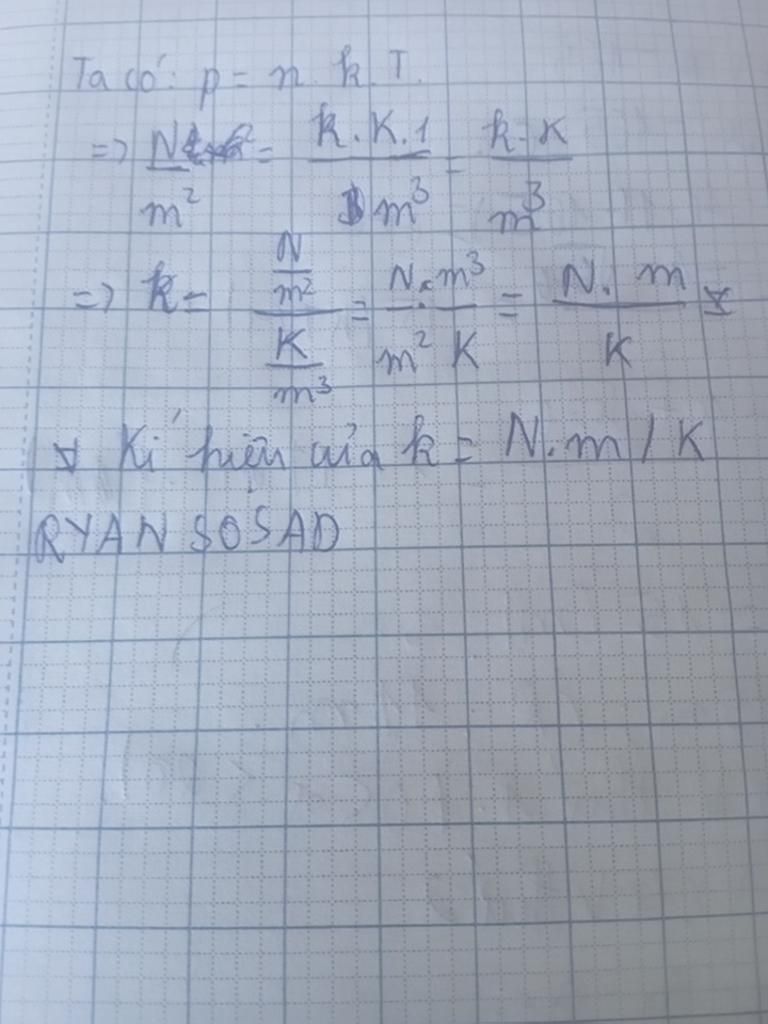 Ta có: p = n k.T.
=> N/m² = k.K.1/m³ = k.K/m³
=> k = (N/m²)/(K/m³) = N.m³/m² K = N.m/K
Kí hiệu của k = N.m/K
RYAN SOSAD